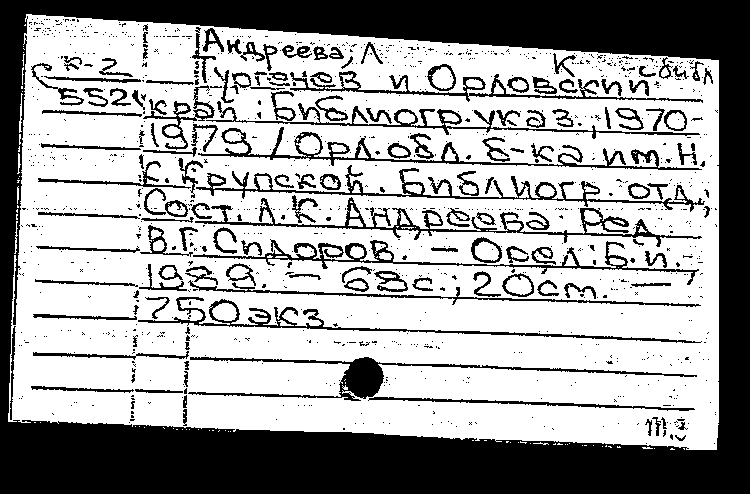 Андреева, Л
К-2 К сбибл
Тургенев и Орловский
5524 край : Библиогр. указ., 1970-
1979 / Орл. обл. б-ка им. Н.
К. Крупской. Библиогр. отд.;
Сост. Л.К. Андреева; Ред.
В.Г. Сидоров. – Орел: Б.и.,
1989. – 68 с.; 20 см. –
750 экз.